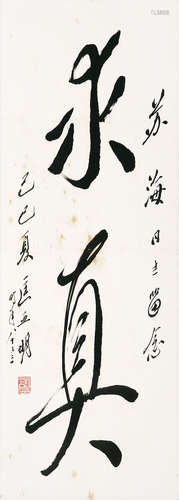 求真
苏海同志留念
己巳夏 匡亚明
时年八十三